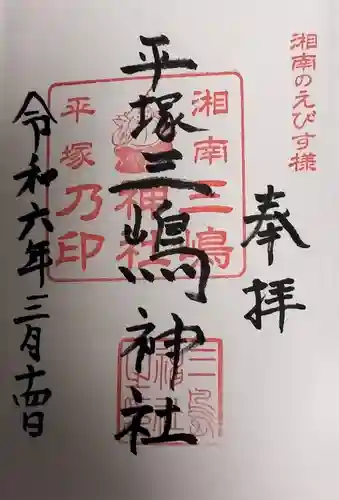 湘南のえびす様
奉拝
平塚三嶋神社
湘南三嶋
神社
平塚乃印
令和六年三月十四日